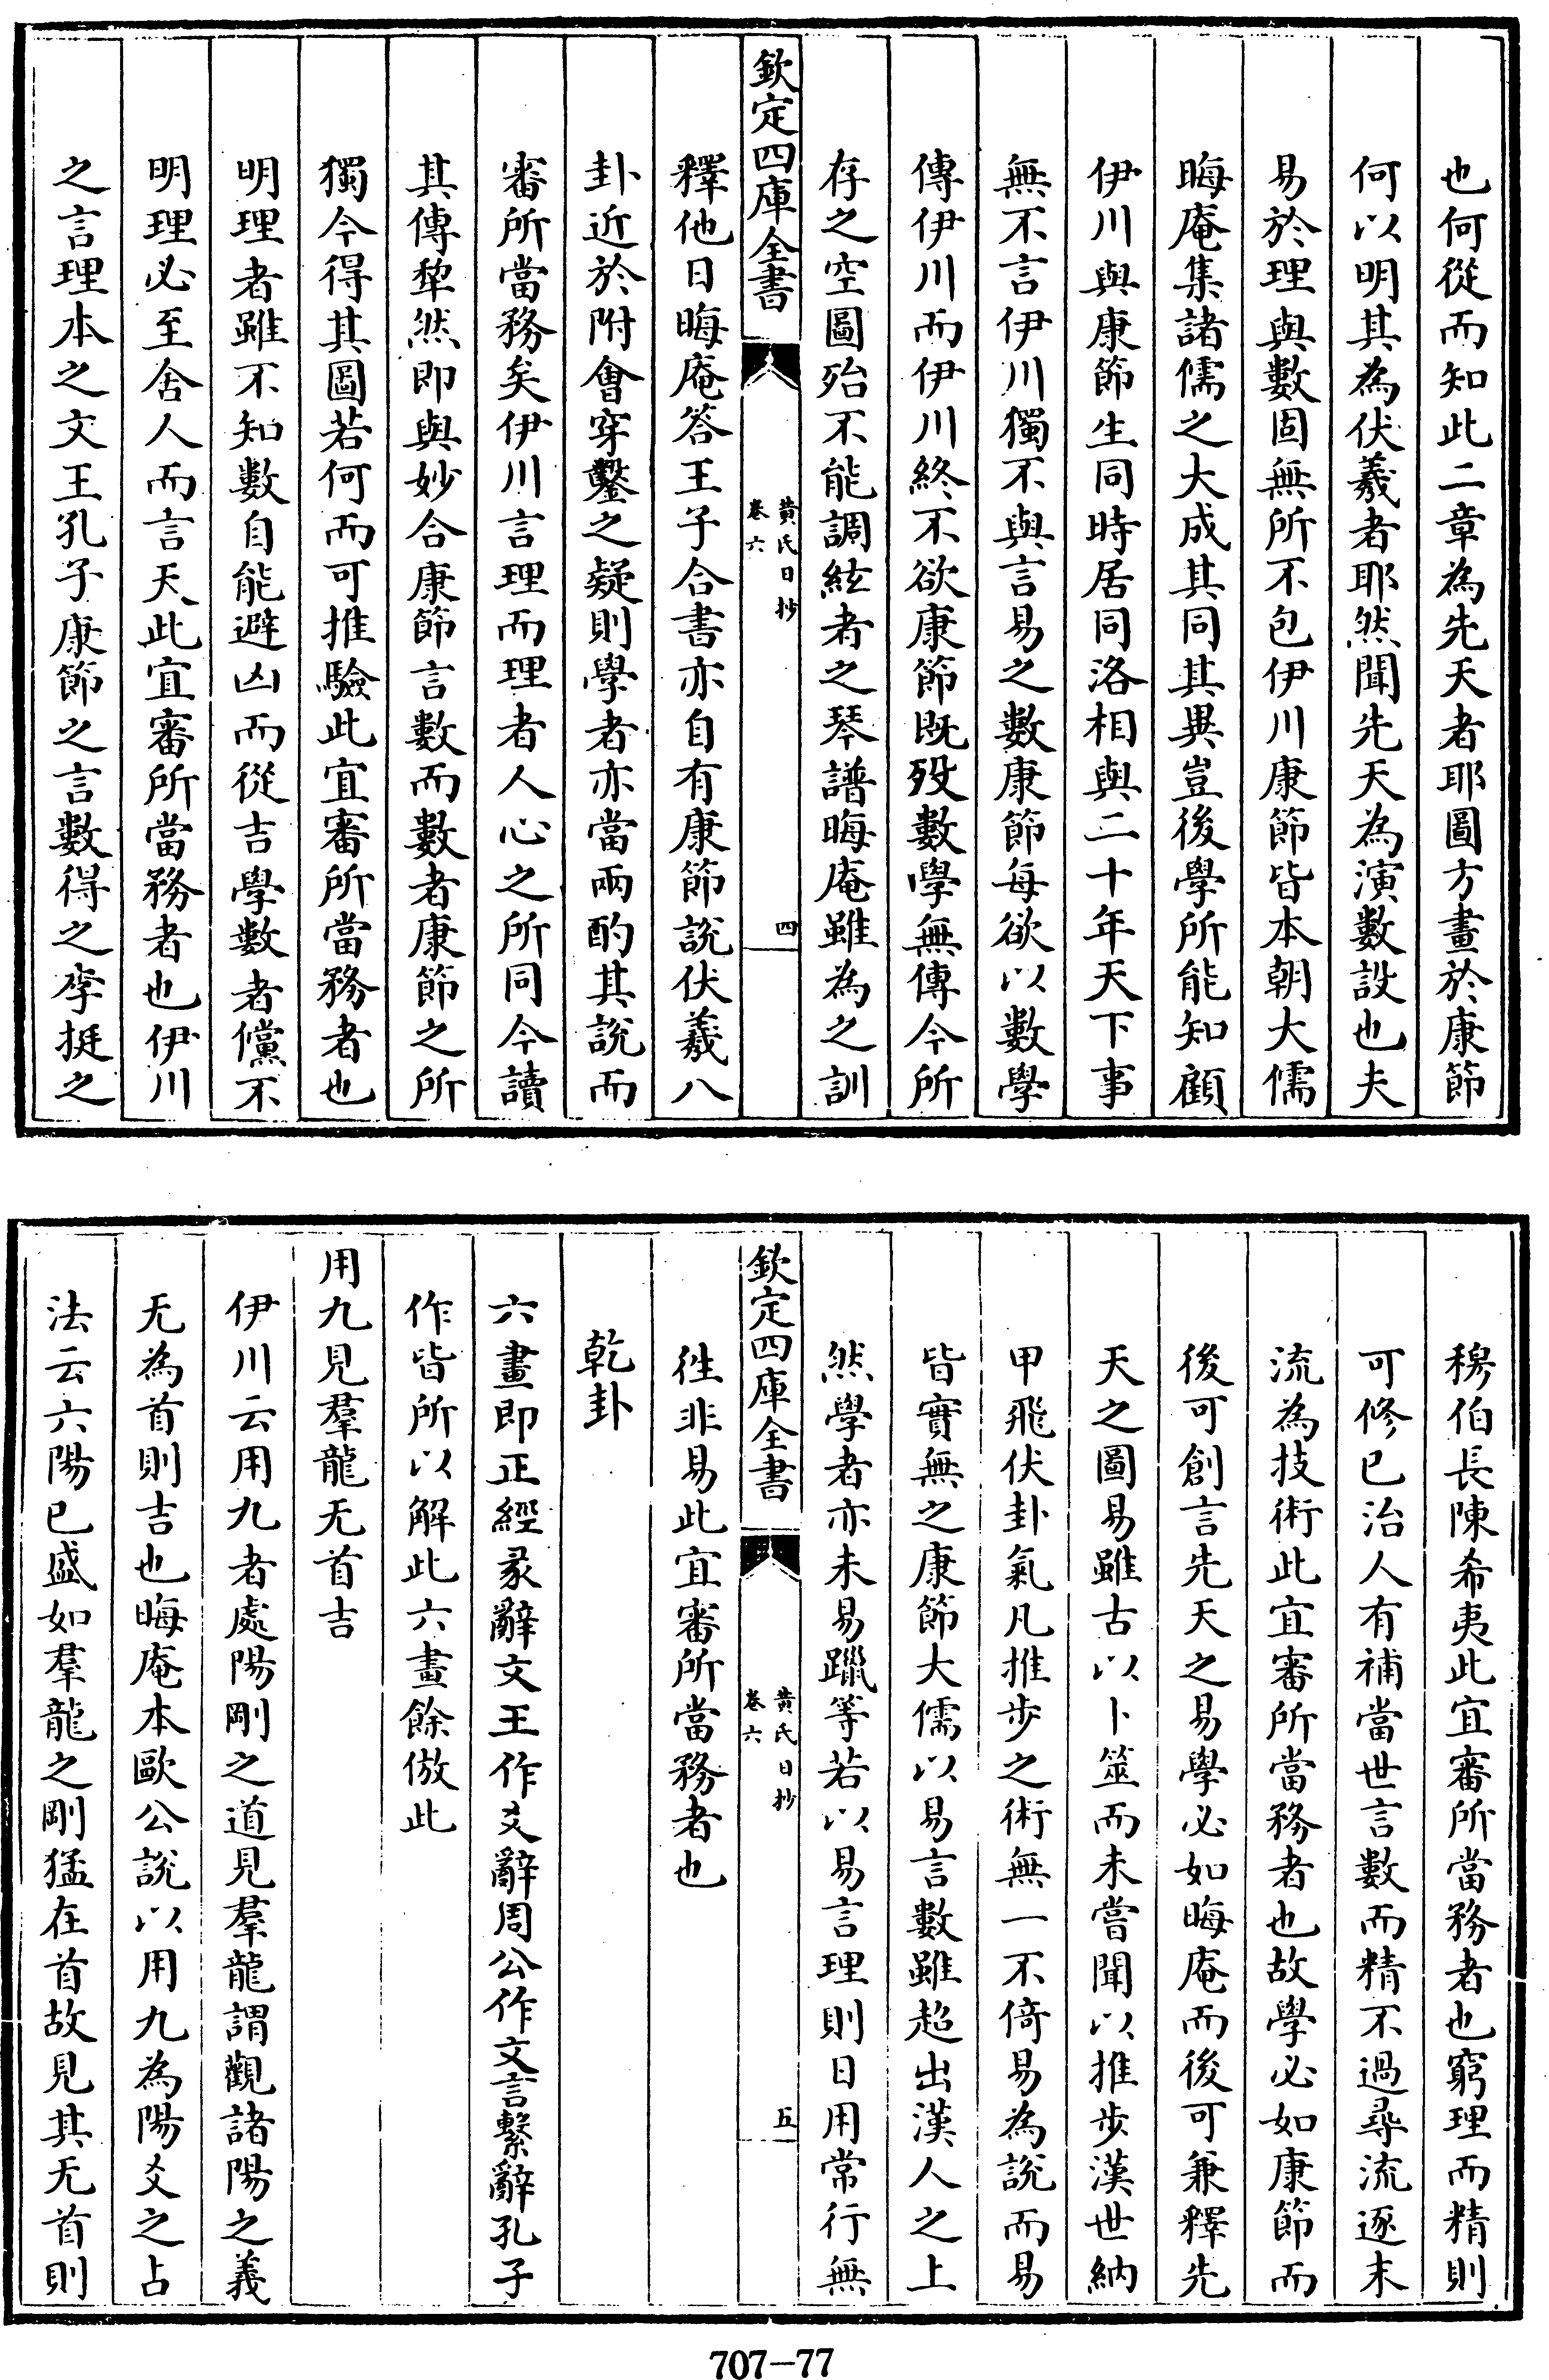 也何從而知此二章為先天者耶圖方畫於康節
何以明其為伏羲者耶然聞先天為演數設也夫
易於理與數固無所不包伊川康節皆本朝大儒
晦庵集諸儒之大成其同其異豈後學所能知顧
伊川與康節生同時居同洛相與二十年天下事
無不言伊川獨不與言易之數康節每欲以數學
傳伊川而伊川終不欲康節既歿數學無傳今所
存之空圖殆不能調絃者之琴譜晦庵雖為之訓
欽定四庫全書
黃氏日抄
卷六
四
釋他日晦庵答王子合書亦自有康節說伏羲八
卦近於附會穿鑿之疑則學者亦當兩酌其說而
審所當務矣伊川言理而理者人心之所同今讀
其傳犂然即與妙合康節言數而數者康節之所
獨今得其圖若何而可推驗此宜審所當務者也
明理者雖不知數自能避凶而從吉學數者儻不
明理必至舍人而言天此宜審所當務者也伊川
之言理本之文王孔子康節之言數得之李挺之
穆伯長陳希夷此宜審所當務者也窮理而精則
可修已治人有補當世言數而精不過尋流逐末
流為技術此宜審所當務者也故學必如康節而
後可創言先天之易學必如晦庵而後可兼釋先
天之圖易雖古以卜筮而未嘗聞以推步漢世納
甲飛伏卦氣凡推步之術無一不倚易為說而易
皆實無之康節大儒以易言數雖超出漢人之上
然學者亦未易躐等若以易言理則日用常行無
欽定四庫全書
黃氏日抄
卷六
五
徃非易此宜審所當務者也
乾卦
六畫即正經彖辭文王作爻辭周公作文言繫辭孔子
作皆所以解此六畫餘倣此
用九見羣龍无首吉
伊川云用九者處陽剛之道見羣龍謂觀諸陽之義
无為首則吉也晦庵本歐公說以用九為陽爻之占
法云六陽已盛如羣龍之剛猛在首故見其无首則
707-77